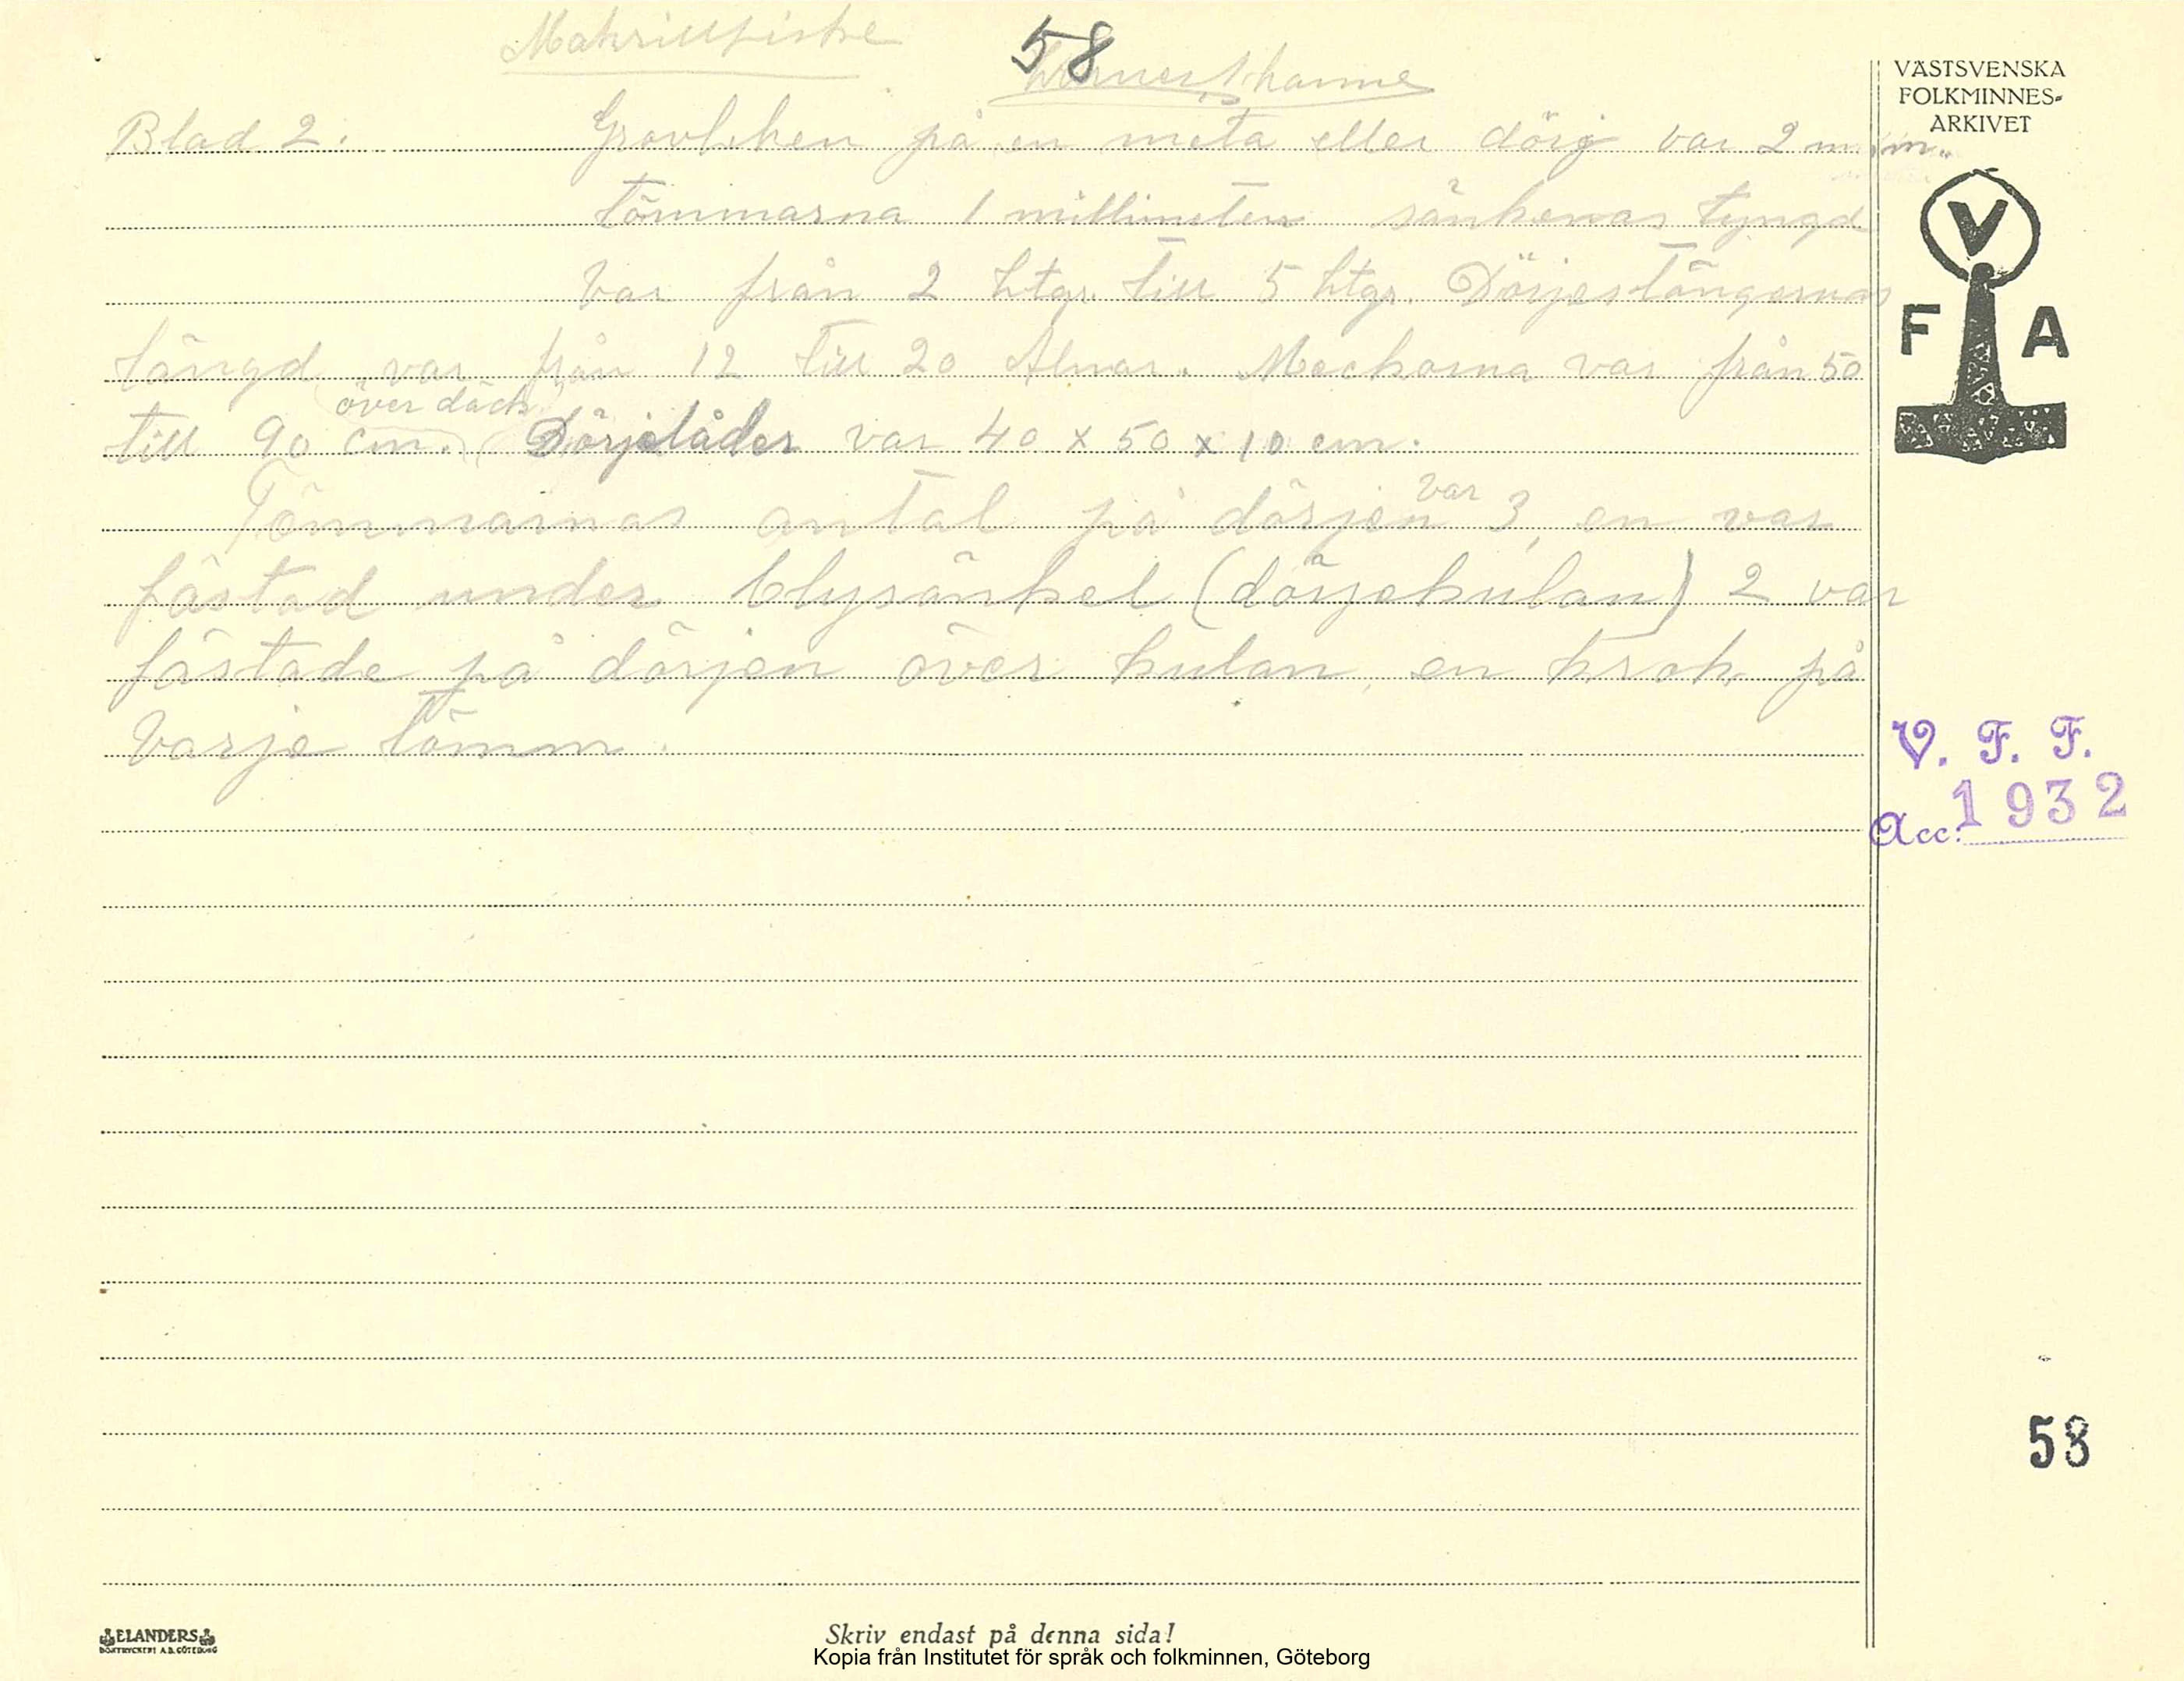 Makrillfiske
58
VÄSTSVENSKA
FOLKMINNES-
ARKIVET
Blad 2. Grovleken på en meta eller dörj var 2 m.m.
tömmarna 1 millimeter sänkenas tyngd
var från 2 htgr. till 5 htgr. Dörjestängernas
V
F A
längd var från 12 till 20 Alnar. Mackarna var från 50
över däck
till 90 cm. Dörjelåder var 40 x 50 x 10 cm.
Tömmarnas antal på dörjen var 3, en var
fästad under blysänket (dörjekulan) 2 var
fästade på dörjen över kulan, en krok på
varje tömm.
V. F. F.
Acc: 1932
58
ELANDERS
BOKTRYCKERI A.B. GÖTEBORG
Skriv endast på denna sida!
Kopia från Institutet för språk och folkminnen, Göteborg